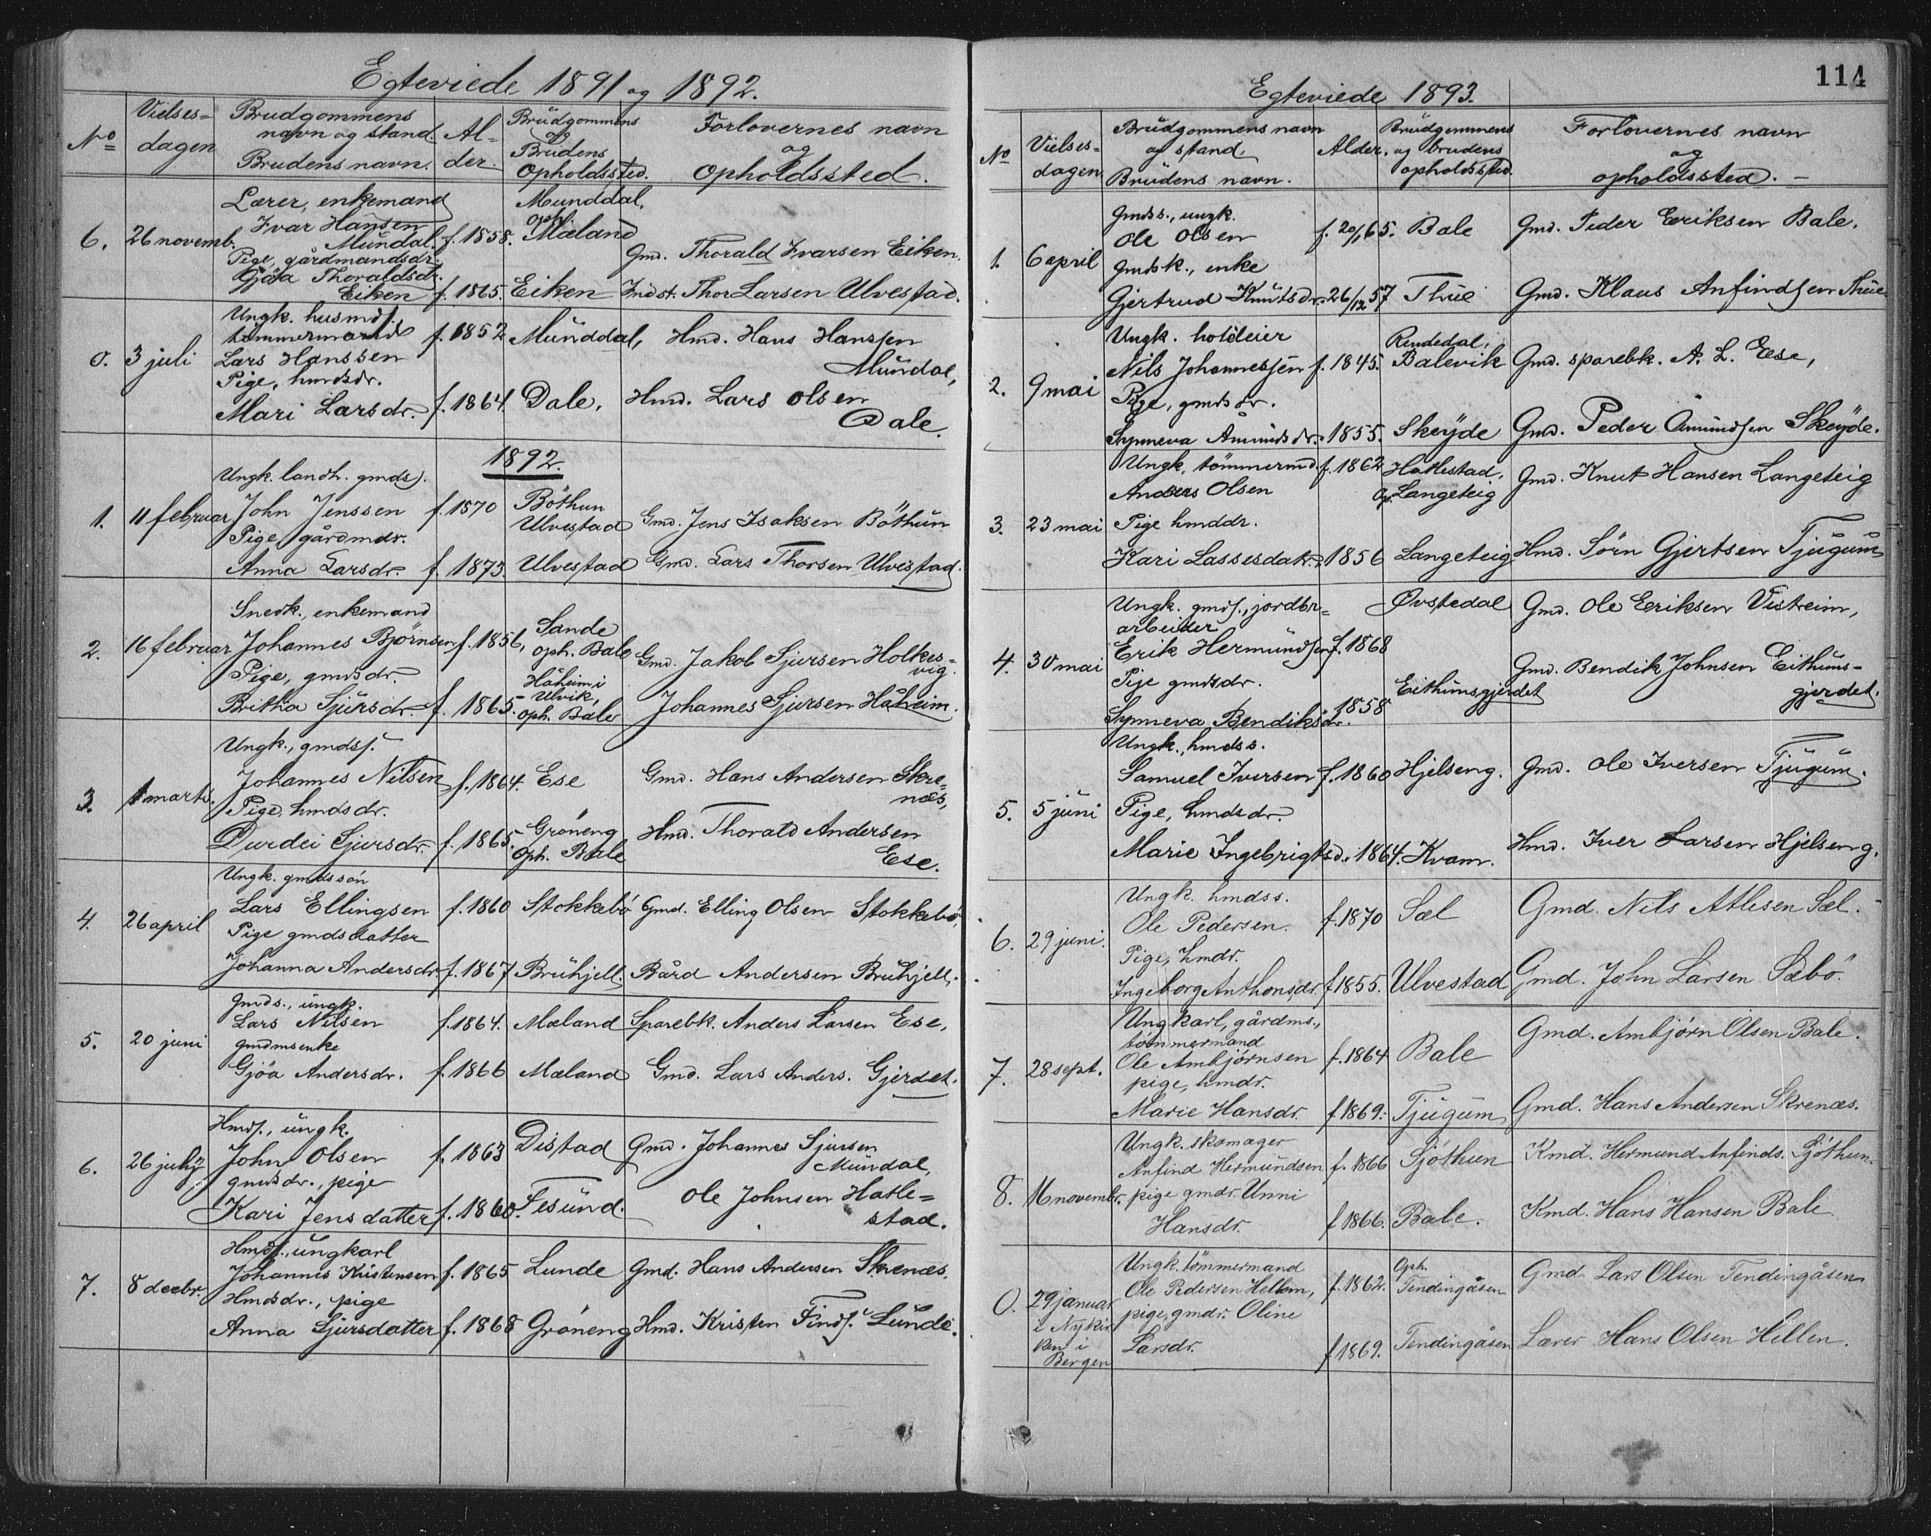 Egteviede 1891 og 1892.
No
Vielses-
dagen
Brudgommens
navn og stand
Brudens navn.
Al-
der.
Brudgommens
og
Brudens
Opholdssted.
Forlovernes navn
og
opholdssted.
6. 26 novemb.
Lærer, enkemand
Ivar Hansen
Mundal. f. 1858.
Munddal,
oph.
Mæland
Gmd. Thorald Ivarsen Eiken.
Pige, gårdmandsdr.
Gjøa Thoraldsdr.
Eiken f. 1865. Eiken Indst. Thor Larsen Ulvestad.
0. 3 juli
Ungk. husmds.
tømmermand f. 1852 Munddal, Hmd. Hans Hanssen
Lars Hanssen
Mundal,
Pige, hmdsdr.
Mari Larsdr. f. 1864. Dale. Hmd. Lars Olsen
Dale.
1892.
1. 11 februar
Ungk. landh. gmds.
John Jenssen f. 1870 Bøthun
Ulvestad Gmd. Jens Isaksen Bøthun
Pige, gårdmdr.
Anna Larsdr. f. 1873. Ulvestad Gmd. Lars Thorsen Ulvestad.
2. 16 februar
Snedk., enkemand
Johannes Bjørnsen f. 1856, Sande
oph. Bale Gmd. Jakob Sjursen Holkes-
vig.
Pige, gmdsdr.
Britha Sjursdr. f. 1865. Håheim i
Ulvik,
oph. Bale Johannes Sjursen Håheim.
3. 1 marts.
Ungk., gmdss.
Johannes Nilsen f. 1864. Ese Gmd. Hans Andersen Skre-
næs,
Pige, hmdsdr.
Durdei Sjursdr. f. 1865. Grøneng
Oph. Bale Hmd. Thorald Andersen
Ese.
4. 26 april
Ungk. gmdssøn
Lars Ellingsen f. 1860 Stokkebø Gmd. Elling Olsen Stokkebø,
Pige gmdsdatter
Johanna Andersdr. f. 1867 Bruhjell. Bård Andersen Bruhjell.
5. 20 juni
Gmds., ungk.
Lars Nilsen f. 1864. Mæland Sparebk. Anders Larsen Ese,
gmdmsenke
Gjøa Andersdr. f. 1866 Mæland Gmd. Lars Anders. Gjerdet.
6. 26 july
Hmds., ungk.
John Olsen f. 1863 Distad Gmd. Johannes Sjursen
Mundal,
gmdsdr., pige
Kari Jensdatter f. 1860. Fesund. Ole Johnsen Hatle-
stad.
7. 8 decbr.
Hmds., ungkarl
Johannes Kristensen f. 1865 Lunde Gmd. Hans Andersen Skrenæs.
Hmdsdr., pige
Anna Sjursdatter f. 1868 Grøneng Hmd. Kristen Finds. Lunde.
114
Egteviede 1893.
No
Vielses-
dagen.
Brudgommens navn
og stand.
Brudens navn.
Alder.
Brudgommens
og brudens
opholdssted.
Forlovernes navn
og
opholdssted.
1. 6 april
Gmds., ungk.
Ole Olsen f. 20/1 65. Bale Gmd. Peder Eriksen Bale.
Gmdsk., enke
Gjertrud Knutsdr. 26/12 57 Thue Gmd. Klaus Anfindsen Thue
2. 9 mai
Ungk. holdeier
Nils Johannessen f. 1845. Rendedal,
Balevik Gmd. sparebk. A. L. Ese,
Pige, gmdsdr.
Synneva Amundsdr. 1855. Skeyde Gmd. Peder Amundsen Skeyde.
3. 23 mai
Ungk. tømmermd. f. 1862 Hatlestad,
Anders Olsen Op. Langeteig Gmd. Knut Hansen Langeteig
Pige hmddr.
Kari Lassesdatr. 1856 Langeteig Hmd. Sørn Gjertsen Tjugum
4. 30 mai
Ungk. gmds., jordbr-
arbeider
Erik Hermundsen f. 1868 Øvstedal Gmd. Ole Eriksen Vistreim,
Pige gmdsdr.
Synneva Bendiksdr. 1858 Eithunsgjerdet Gmd. Bendik Johnsen Eithuns-
gjerdet.
5. 5 juni
Ungk. hmdss.
Samuel Iversen f. 1860 Hjelseng. Gmd. Ole Iversen Tjugum.
Pige, hmdsdr.
Marie Ingebrigtsd. 1864. Kvam. Hmd. Iver Larsen Hjelseng.
6. 29 juni.
Ungk. hmdss.
Ole Pedersen. f. 1870 Sæl Gmd. Nils Atlesen Sæl.
Pige, hmdr.
Ingeborg Anthonsdr. f 1855. Ulvestad Gmd. John Larsen Sæbø.
7. 28 sept.
Ungkarl, gårdms.,
tømmermand
Ole Ambjørnsen f. 1864 Bale Gmd. Ambjørn Olsen Bale.
pige, hmdr.
Marie Hansdr. f 1869. Tjugum Gmd. Hans Andersen Skrenæs.
8. 16 novembr.
Ungk. skomager
Anfind Hermundsen f. 1866 Sjøthun Kmd. Hermund Anfinds. Sjøthun.
pige gmdr. Unni
Hansdr. f 1866. Bale. Kmd. Hans Hansen Bale
0. 29 januar
i Nykir
ken i
Bergen
Ungk. tømmermand
Ole Pedersen Hellam, f. 1862. Oph.
Tendingåsen Gmd. Lars Olsen Tendingåsen
pige, gmdr. Oline
Larsdr. f 1869. Tendingåsen Lærer Hans Olsen Hellen.